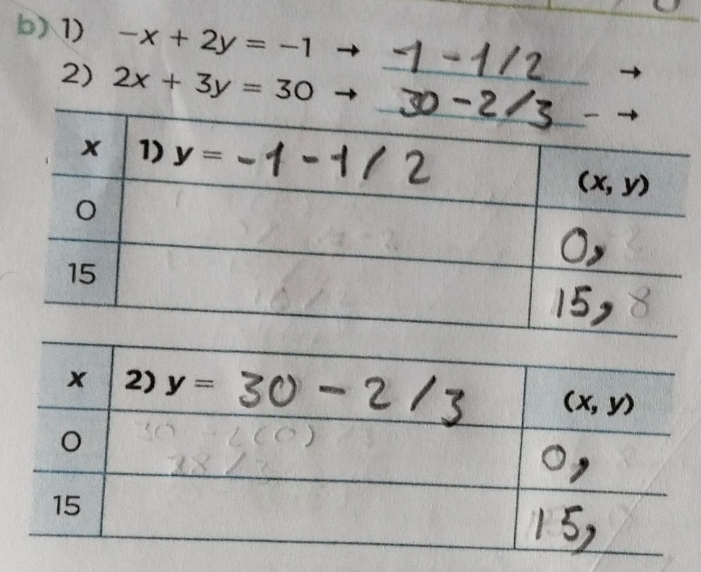 b) 1) -x + 2y = -1 → -1 - 1/2 →
2) 2x + 3y = 30 → 30 - 2/3 - →
x 1) y = -1 - 1/2 (x, y)
0 0,
15 15, 8
x 2) y = 30 - 2/3 (x, y)
0 30 - 2(0) 0,
28/3
15 15,